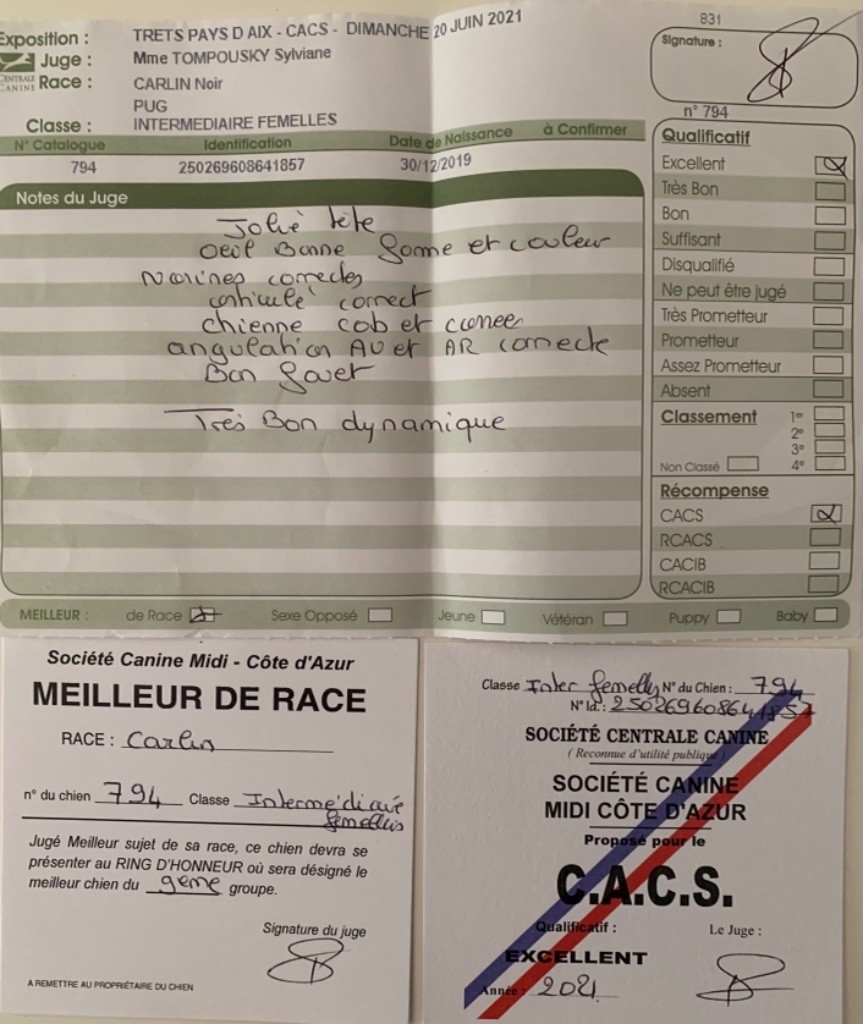 Exposition : TRETS PAYS D AIX - CACS - DIMANCHE 20 JUIN 2021
Juge : Mme TOMPOUSKY Sylviane
CENTRALE CANINE
Race : CARLIN Noir
PUG
Classe : INTERMEDIAIRE FEMELLES
831
Signature :
n° 794
N° Catalogue Identification Date de Naissance à Confirmer
794 250269608641857 30/12/2019
Notes du Juge
Jolie tête
oeil Bonne forme et couleur
Narines correctes
correct
chienne cob et
angulation AV et AR correcte
Bon fouet
Très Bon dynamique
Qualificatif
Excellent
Très Bon
Bon
Suffisant
Disqualifié
Ne peut être jugé
Très Prometteur
Prometteur
Assez Prometteur
Absent
Classement 1er
2e
3e
Non Classé 4e
Récompense
CACS
RCACS
CACIB
RCACIB
MEILLEUR : de Race Sexe Opposé Jeune Vétéran Puppy Baby
Société Canine Midi - Côte d'Azur
MEILLEUR DE RACE
RACE : Carlin
n° du chien 794 Classe Intermédiaire
femelles
Jugé Meilleur sujet de sa race, ce chien devra se
présenter au RING D'HONNEUR où sera désigné le
meilleur chien du 9eme groupe.
Signature du juge
A REMETTRE AU PROPRIÉTAIRE DU CHIEN
Classe Inter femelly N° du Chien : 794
N° Id. : 250269608641857
SOCIÉTÉ CENTRALE CANINE
( Reconnue d'utilité publique )
SOCIÉTÉ CANINE
MIDI CÔTE D'AZUR
Proposé pour le
C.A.C.S.
Qualificatif : Le Juge :
EXCELLENT
Année : 2021